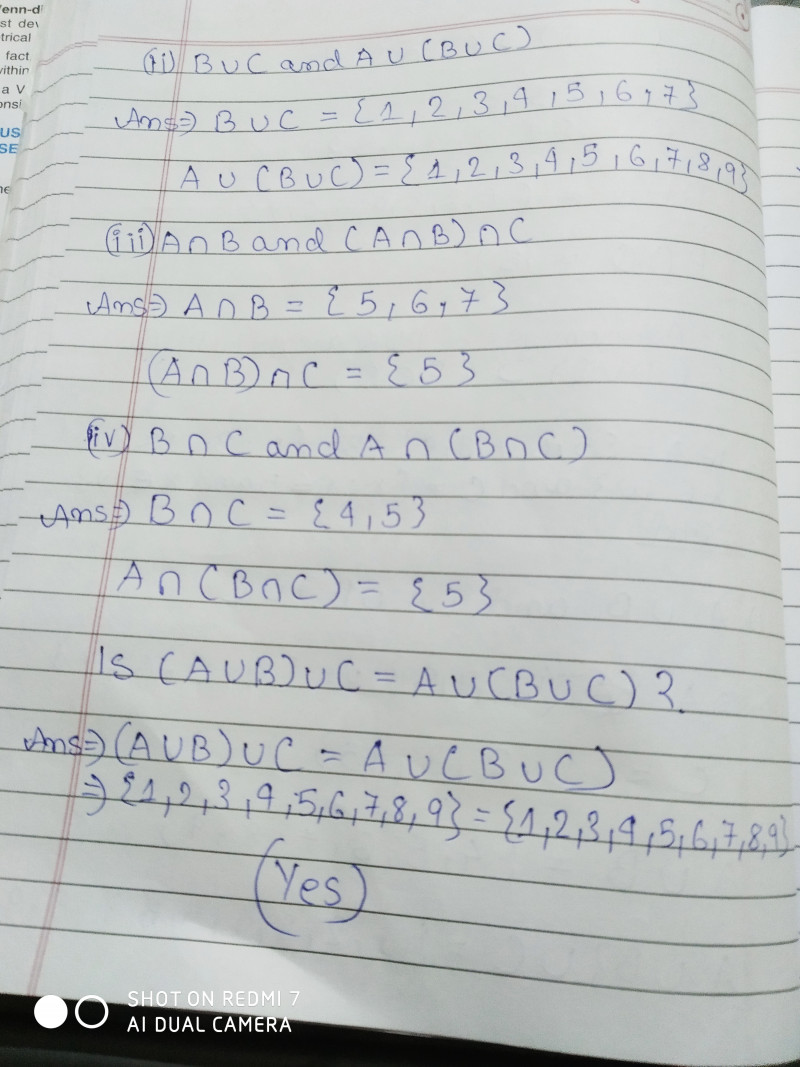 enn-d
st dev
trical
fact
within
a V
onsi
US
SE
(ii) B∪C and A∪(B∪C)
Ans⇒ B∪C = {1, 2, 3, 4, 5, 6, 7}
A∪(B∪C) = {1, 2, 3, 4, 5, 6, 7, 8, 9}
(iii) A∩B and (A∩B)∩C
Ans⇒ A∩B = {5, 6, 7}
(A∩B)∩C = {5}
(iv) B∩C and A∩(B∩C)
Ans⇒ B∩C = {4, 5}
A∩(B∩C) = {5}
Is (A∪B)∪C = A∪(B∪C)?
Ans⇒ (A∪B)∪C = A∪(B∪C)
⇒ {1, 2, 3, 4, 5, 6, 7, 8, 9} = {1, 2, 3, 4, 5, 6, 7, 8, 9}
(Yes)
SHOT ON REDMI 7
AI DUAL CAMERA